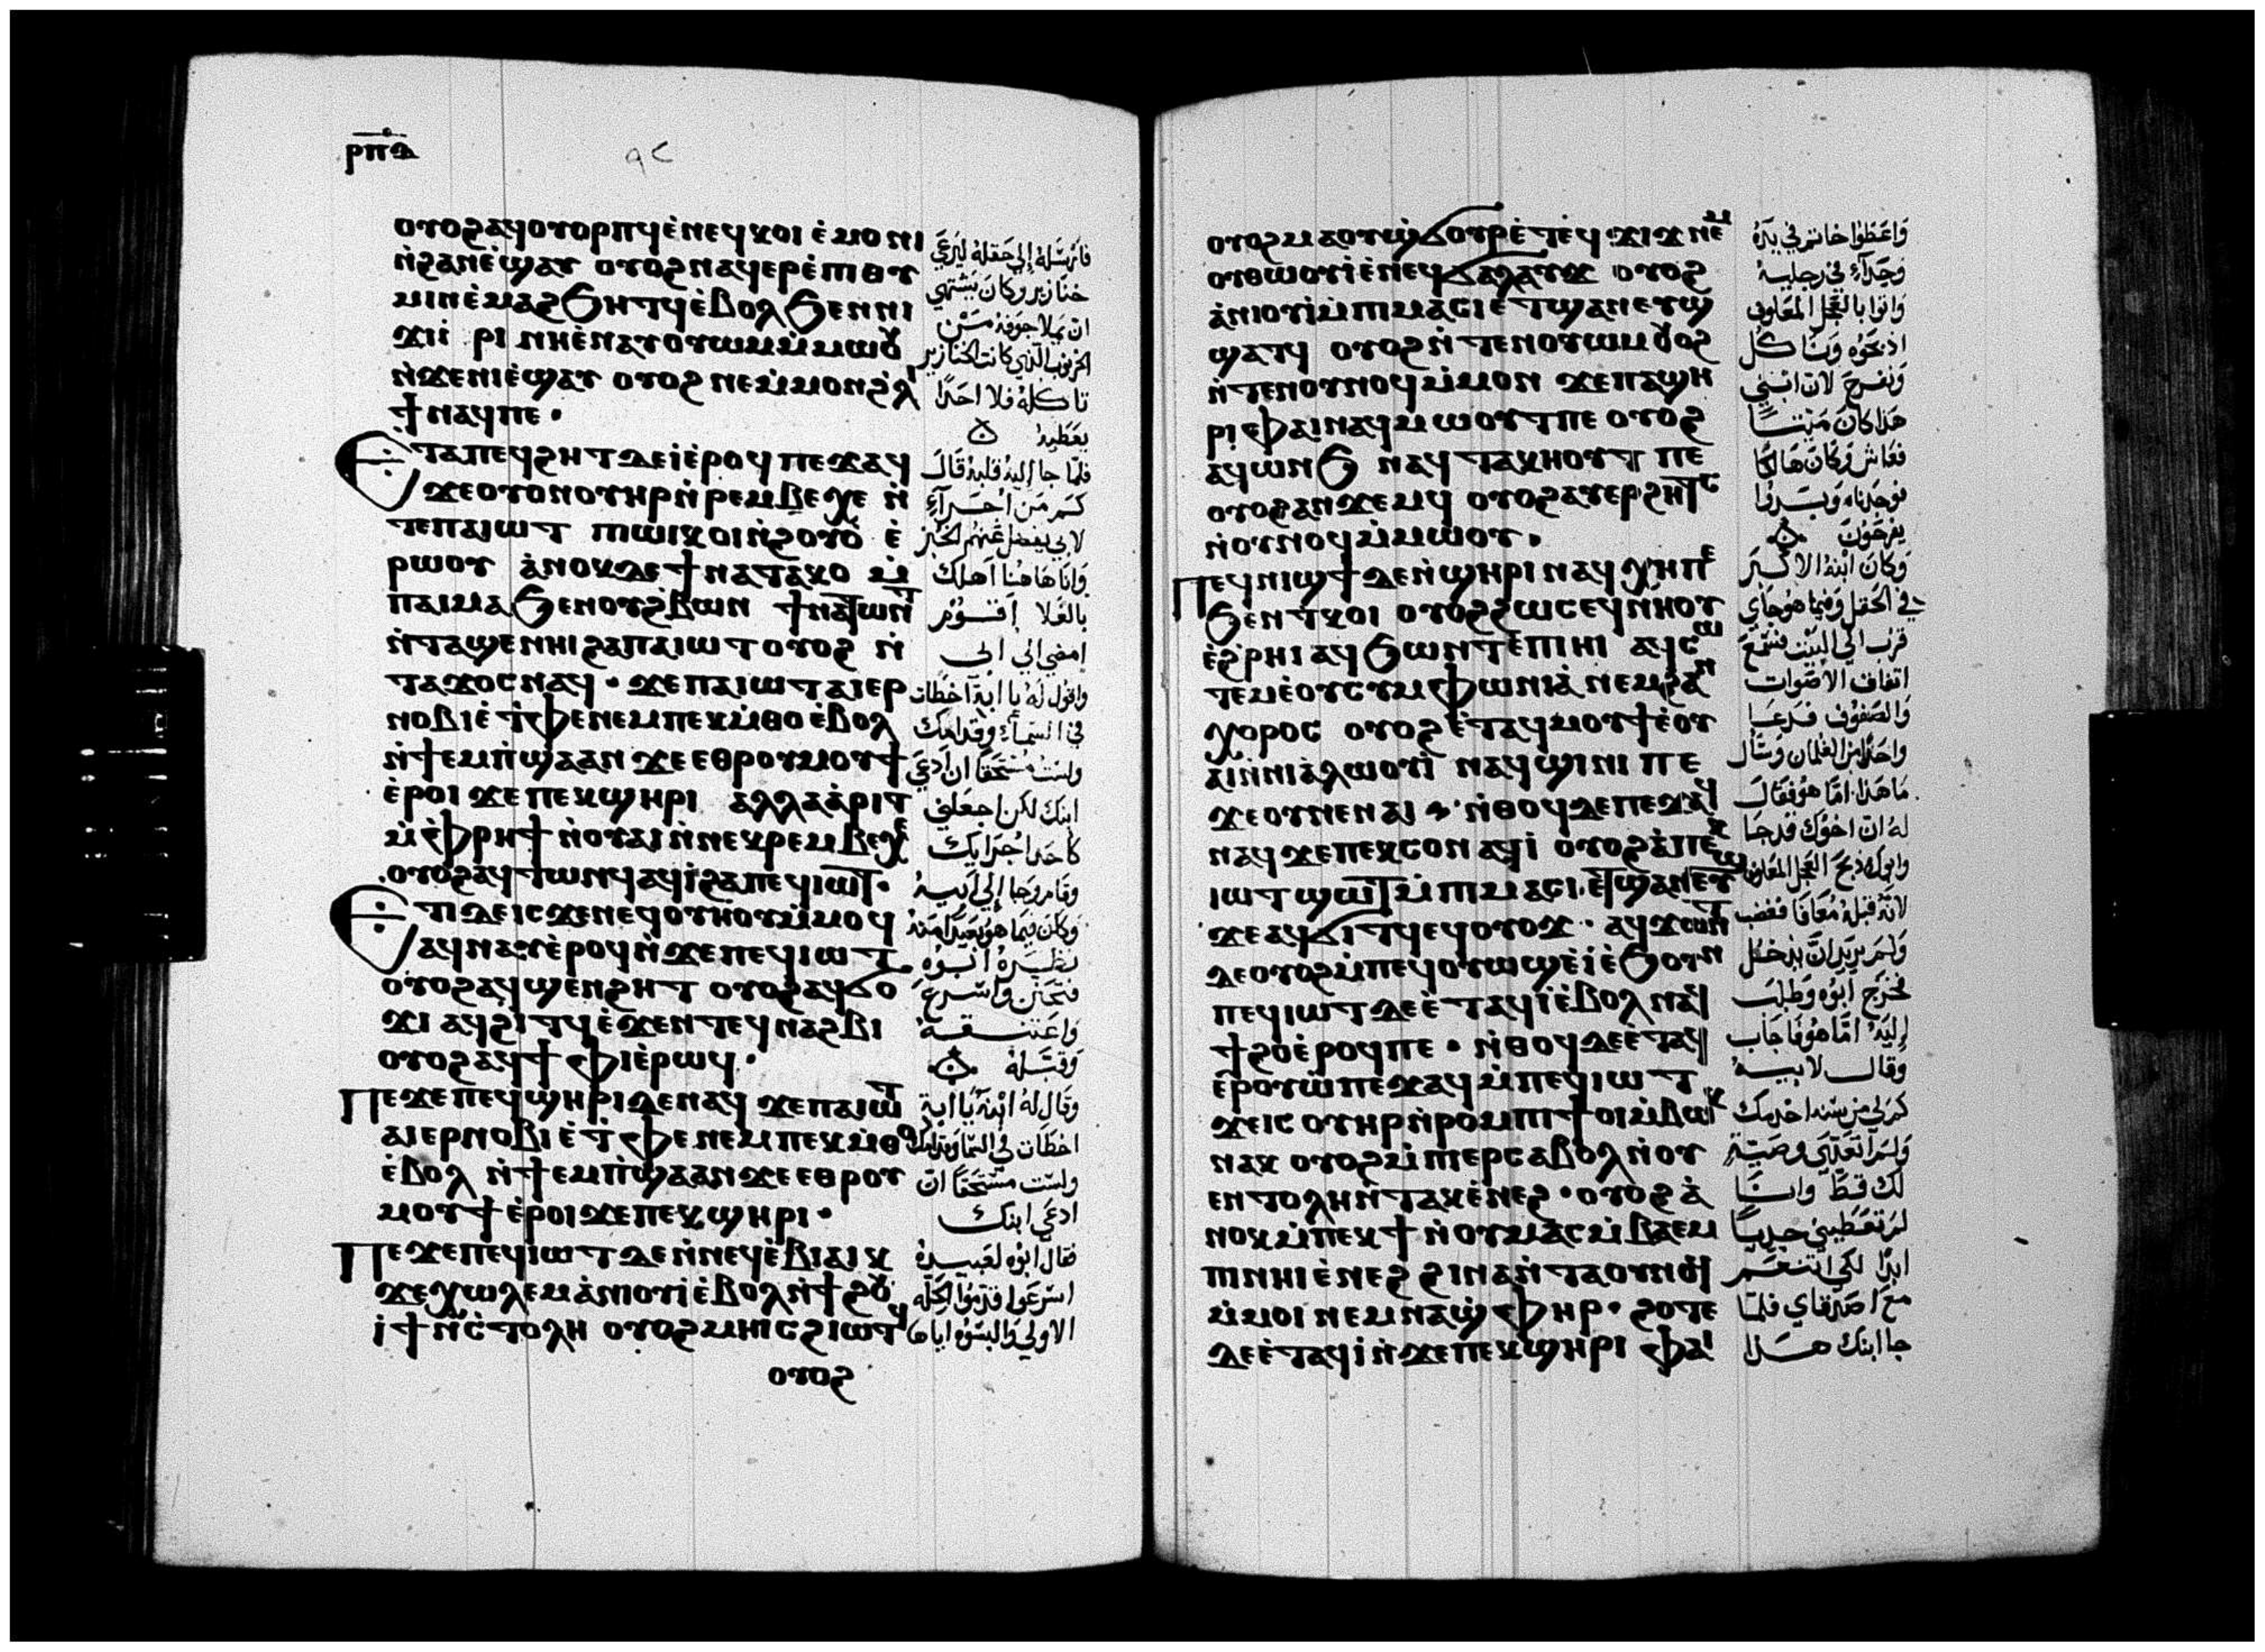 ⲣⲡⲇ
ⲟⲩⲟϩ ⲁϥⲟⲩⲟⲣⲡϥ ⲉ̀ⲛⲉϥⲕⲟⲓ ⲉ̀ⲙⲟⲛⲓ
ⲛ̀ϩⲁⲛⲉ̀ϣⲁⲩ ⲟⲩⲟϩ ⲛⲁϥⲉⲣⲉ̀ⲡⲓⲑⲩ
ⲙⲓⲛ ⲉ̀ⲙⲁϩ ϧⲏⲧϥ ⲉ̀ⲃⲟⲗ ϧⲉⲛ ⲛⲓ
ϫⲓⲓ̀ ⲣⲓ ⲛⲏ ⲉ̀ⲛⲁⲩⲟⲩⲱⲙ ⲙ̀ⲙⲱⲟⲩ
ⲛ̀ϫⲉ ⲛⲓⲉ̀ϣⲁⲩ ⲟⲩⲟϩ ⲛⲉ ⲙ̀ⲙⲟⲛ ϩ̀ⲗⲓ
ϯ ⲛⲁϥ ⲡⲉ ·
Ⲉⲧⲁ ⲡⲉϥϩⲏⲧ ⲇⲉ ⲓ̀ ⲉ̀ⲣⲟϥ ⲡⲉϫⲁϥ
ϫⲉ ⲟⲩⲟⲛ ⲟⲩⲏⲣ ⲛ̀ⲣⲉⲙⲃⲉⲭⲉ ⲛ̀
ⲧⲉ ⲡⲁⲓⲱⲧ ⲡⲓⲱⲓⲕ ⲟⲓ ⲛ̀ϩⲟⲩⲟ̀ ⲉ̀
ⲣⲱⲟⲩ ⲁ̀ⲛⲟⲕ ⲇⲉ ϯⲛⲁⲧⲁⲕⲟ ⲙ̀
ⲡⲁⲓⲙⲁ ϧⲉⲛ ⲟⲩϩ̀ⲃⲱⲛ ϯⲛⲁⲧⲱⲛⲧ
ⲛ̀ⲧⲁϣⲉ ⲛⲏⲓ ϩⲁ ⲡⲁⲓⲱⲧ ⲟⲩⲟϩ ⲛ̀
ⲧⲁϫⲟⲥ ⲛⲁϥ · ϫⲉ ⲡⲁⲓⲱⲧ ⲁⲓⲉⲣ
ⲛⲟⲃⲓ ⲉ̀ⲧ̀ⲫⲉ ⲛⲉⲙ ⲡⲉⲕⲙ̀ⲑⲟ ⲉ̀ⲃⲟⲗ
ⲛ̀ϯⲉⲙⲡ̀ϣⲁ ⲁⲛ ϫⲉ ⲉⲑⲣⲟⲩⲙⲟⲩϯ
ⲉ̀ⲣⲟⲓ ϫⲉ ⲡⲉⲕϣⲏⲣⲓ ⲁⲗⲗⲁ ⲁ̀ⲣⲓⲧ
ⲙ̀ⲫ̀ⲣⲏϯ ⲛ̀ⲟⲩⲁⲓ ⲛ̀ⲛⲉⲕⲣⲉⲙⲃⲉⲭⲉ
ⲟⲩⲟϩ ⲁϥⲧⲱⲛϥ ⲁϥⲓ̀ ϩⲁ ⲡⲉϥⲓⲱⲧ ·
Ⲉⲧⲓ ⲇⲉ ⲓⲥϫⲉⲛ ⲉϥⲟⲩⲏⲟⲩ ⲙ̀ⲙⲟϥ
ⲁϥⲛⲁⲩ ⲉ̀ⲣⲟϥ ⲛ̀ϫⲉ ⲡⲉϥⲓⲱⲧ
ⲟⲩⲟϩ ⲁϥϣⲉⲛϩⲏⲧ ⲟⲩⲟϩ ⲁϥϭⲟ
ϫⲓ ⲁϥϩⲓⲧϥ ⲉ̀ϫⲉⲛ ⲧⲉϥⲛⲁϩⲃⲓ
ⲟⲩⲟϩ ⲁϥϯ ⲫⲓ ⲉ̀ⲣⲱϥ ·
Ⲡⲉϫⲉ ⲡⲉϥϣⲏⲣⲓ ⲇⲉ ⲛⲁϥ ϫⲉ ⲡⲁⲓⲱⲧ
ⲁⲓⲉⲣⲛⲟⲃⲓ ⲉ̀ⲧ̀ⲫⲉ ⲛⲉⲙ ⲡⲉⲕⲙ̀ⲑⲟ
ⲉ̀ⲃⲟⲗ ⲛ̀ϯⲉⲙⲡ̀ϣⲁ ⲁⲛ ϫⲉ ⲉⲑⲣⲟⲩ
ⲙⲟⲩϯ ⲉ̀ⲣⲟⲓ ϫⲉ ⲡⲉⲕϣⲏⲣⲓ ·
Ⲡⲉϫⲉ ⲡⲉϥⲓⲱⲧ ⲇⲉ ⲛ̀ⲛⲉϥⲉ̀ⲃⲓⲁⲓⲕ
ϫⲉ ⲭⲱⲗⲉⲙ ⲁ̀ⲛⲓⲟⲩⲓ̀ ⲉ̀ⲃⲟⲗ ⲛ̀ϯϩⲟⲩ
ⲓ̀ϯ ⲛ̀ⲥ̀ⲧⲟⲗⲏ ⲟⲩⲟϩ ⲙⲏⲓⲥ ϩⲓⲱⲧϥ
ⲟⲩⲟϩ
فارسله الي حقله ليرعي
خنازير وكان يشتهي
ان يملا جوفه من
الخرنوب الذي كانت الخنازير
تاكله فلا احدا
يعطيه
فلما جا اليه قلبه قال
كم من اجرآء
لابي يفضل عنهم الخبز
وانا هاهنا اهلك
بالغلا اقوم
امضي الي ابي
واقول له يا ابة اخطات
في السمآء وقدامك
ولست مستحقا ان ادعي
ابنك لكن اجعلني
كاحد اجرايك
وقام وجا الي ابيه
وكان فيما هو بعيدا منه
نظره ابوه
فتحنن واسرع
واعتنقه
وقبله
وقال له ابنه يا ابة
اخطات في السما وقدامك
ولست مستحقا ان
ادعي ابنك
فقال ابوه لعبيده
اسرعوا قدموا الحله
الاولي والبسوه اياها
ⲟⲩⲟϩ ⲙⲁ ⲟⲩϣ̀ϭⲟⲩⲣ ⲉ̀ⲧⲉϥϫⲓϫ ⲛⲉⲙ
ⲟⲩⲑⲱⲟⲩⲓ̀ ⲉ̀ⲛⲉϥϭⲁⲗⲁⲩϫ ⲟⲩⲟϩ
ⲁ̀ⲛⲓⲟⲩⲓ̀ ⲙ̀ⲡⲓⲙⲁⲥⲓ ⲉⲧϣⲁⲛⲉⲩϣ
ϣⲁⲧϥ ⲟⲩⲟϩ ⲛ̀ⲧⲉⲛⲟⲩⲱⲙ ⲟⲩⲟϩ
ⲛ̀ⲧⲉⲛⲟⲩⲛⲟϥ ⲙ̀ⲙⲟⲛ ϫⲉ ⲡⲁϣⲏ
ⲣⲓ ⲫⲁⲓ ⲛⲁϥⲙⲱⲟⲩⲧ ⲡⲉ ⲟⲩⲟϩ
ⲁϥⲱⲛϧ ⲛⲁϥⲧⲁⲕⲏⲟⲩⲧ ⲡⲉ
ⲟⲩⲟϩ ⲁⲛϫⲉⲙϥ ⲟⲩⲟϩ ⲁⲩⲉⲣϩⲏⲧⲥ
ⲛ̀ⲟⲩⲛⲟϥ ⲙ̀ⲙⲱⲟⲩ ·
Ⲡⲉϥⲛⲓϣϯ ⲇⲉ ⲛ̀ϣⲏⲣⲓ ⲛⲁϥⲭⲏ ⲡⲉ
ϧⲉⲛ ⲧ̀ⲕⲟⲓ ⲟⲩⲟϩ ϩⲱⲥ ⲉϥⲛⲏⲟⲩ
ⲉ̀ϩ̀ⲣⲏⲓ ⲁϥϧⲱⲛⲧ ⲉ̀ⲡⲓⲏⲓ ⲁϥⲥⲱ
ⲧⲉⲙ ⲉ̀ⲟⲩⲥⲩⲙⲫⲱⲛⲓⲁ̀ ⲛⲉⲙ ϩⲁⲛ
ⲭⲟⲣⲟⲥ ⲟⲩⲟϩ ⲉ̀ⲧⲁϥⲙⲟⲩϯ ⲉ̀ⲟⲩ
ⲁⲓ ⲛ̀ⲛⲓⲁ̀ⲗⲱⲟⲩⲓ̀ ⲛⲁϥϣⲓⲛⲓ ⲡⲉ
ϫⲉ ⲟⲩ ⲡⲉ ⲛⲁⲓ · ⲛ̀ⲑⲟϥ ⲇⲉ ⲡⲉϫⲁϥ
ⲛⲁϥ ϫⲉ ⲡⲉⲕⲥⲟⲛ ⲁϥⲓ̀ ⲟⲩⲟϩ ⲁ̀ ⲡⲉⲕ
ⲓⲱⲧ ϣⲱⲧ ⲙ̀ⲡⲓⲙⲁⲥⲓ ⲉⲧϣⲁⲛⲉⲩϣ
ϫⲉ ⲁϥϭⲓⲧϥ ⲉϥⲟⲩⲟϫ · ⲁϥϫⲱⲛⲧ
ⲇⲉ ⲟⲩⲟϩ ⲙ̀ⲡⲉϥⲟⲩⲱϣ ⲉ̀ⲓ̀ ⲉ̀ϧⲟⲩⲛ
ⲡⲉϥⲓⲱⲧ ⲇⲉ ⲉ̀ⲧⲁϥⲓ̀ ⲉ̀ⲃⲟⲗ ⲛⲁϥ
ϯϩⲟ ⲉ̀ⲣⲟϥ ⲡⲉ · ⲛ̀ⲑⲟϥ ⲇⲉ ⲉ̀ⲧⲁϥ
ⲉⲣⲟⲩⲱ̀ ⲡⲉϫⲁϥ ⲙ̀ⲡⲉϥⲓⲱⲧ
ϫⲉ ⲓⲥ ⲟⲩⲏⲣ ⲛ̀ⲣⲟⲙⲡⲓ ϯⲟⲓ ⲙ̀ⲃⲱⲕ
ⲛⲁⲕ ⲟⲩⲟϩ ⲙ̀ⲡⲓⲉⲣⲥⲁⲃⲟⲗ ⲛ̀ⲟⲩ
ⲉⲛⲧⲟⲗⲏ ⲛ̀ⲧⲁⲕ ⲉ̀ⲛⲉϩ · ⲟⲩⲟϩ ⲁ̀
ⲛⲟⲕ ⲙ̀ⲡⲉⲕϯ ⲛ̀ⲟⲩⲙⲁⲥ ⲙ̀ⲃⲁⲉⲙ
ⲡⲓ ⲛⲏⲓ ⲉ̀ⲛⲉϩ ϩⲓⲛⲁ ⲛ̀ⲧⲁⲟⲩⲛⲟϥ
ⲙ̀ⲙⲟⲓ ⲛⲉⲙ ⲛⲁϣ̀ⲫⲏⲣ · ϩⲟⲧⲉ
ⲇⲉ ⲉ̀ⲧⲁϥⲓ̀ ⲛ̀ϫⲉ ⲡⲉⲕϣⲏⲣⲓ ⲫⲁⲓ
واعطوا خاتم في يده
وحذآء في رجليه
واتوا بالعجل المعلوف
اذبحوه وناكل
ونفرح لان ابني
هذا كان ميتا
فعاش وكان هالكا
فوجدناه وبدوا
يفرحون
وكان ابنه الاكبر
في الحقل وفيما هو جاي
قرب الي البيت فسمع
اتفاق الاصوات
والصفوف فدعا
واحدا من الغلمان وسال
ما هذا. اما هو فقال
له ان اخوك قد جا
وابوك ذبح العجل المعلوف
لانه قبله معافا فغضب
ولم يريد ان يدخل
فخرج ابوه وطلب
اليه اما هو فاجاب
وقال لابيه
كم لي من سنه اخدمك
ولم اتعدي وصية
لك قط وانا
لم تعطيني جديا
ابدا لكي اتنعم
مع اصدقاي فلما
جا ابنك هذا